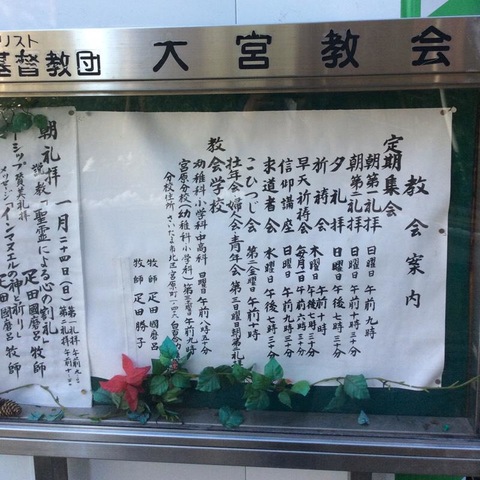 リスト
基督教団 大宮教会
教会案内
定期集会
朝第一礼拝 日曜日 午前九時
朝第二礼拝 日曜日 午前十時三十分
夕礼拝 日曜日 午後七時三十分
祈祷会 木曜日 午前十時
木曜日 午後七時三十分
早天祈祷会 毎月一日 午前六時三十分
信仰講座 水曜日 午後七時三十分
求道者会 水曜日 午後七時三十分
こひつじ会 第二金曜日 午前十時
壮年会 婦人会 青年会 第三日曜日朝第二礼拝
教会学校
幼稚科 小学科 中高科 日曜日 午前八時五十分
宮原分校(幼稚科 小学科) 第三土曜 午前九時
分校住所 さいたま市北区宮原町
牧師 疋田國磨呂
牧師 疋田勝子
朝礼拝 一月二十四日(日) 第一礼拝 午前九
第二礼拝 午前十
説教「聖霊による心の割礼」
疋田國磨呂 牧師
シップ 賛美礼拝
メッセージ「インマヌエルの神と祈り」
疋田國磨呂 牧師